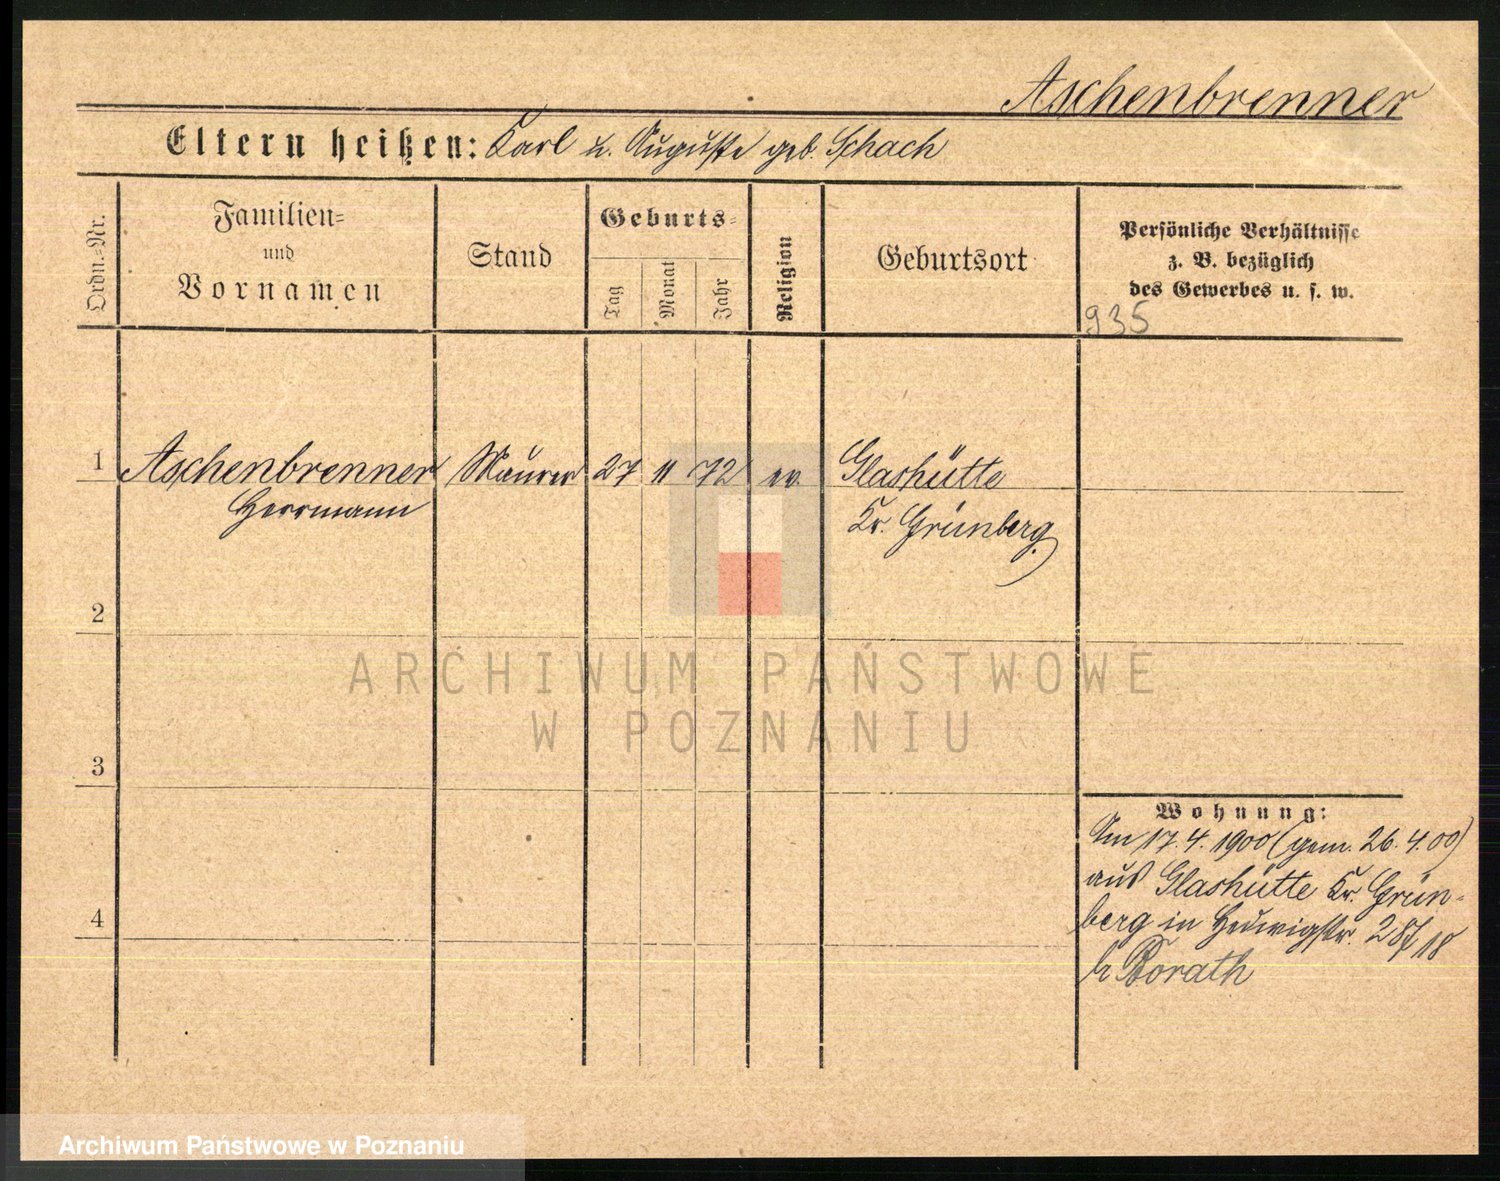 Aschenbrenner
Eltern heißen: Karl u. Auguste geb. Schach
Ordn.-Nr.
Familien-
und
Vornamen
Stand
Geburts-
Tag
Monat
Jahr
Religion
Geburtsort
Persönliche Verhältnisse
z. B. bezüglich
des Gewerbes u. s. w.
935
1 Aschenbrenner Maurer 27 11 72 ev. Glashütte
Herrmann Kr. Grünberg
2
3
4
Wohnung:
Am 17.4.1900 (gem. 26.4.00)
aus Glashütte Kr. Grün-
berg in Hedwigstr. 287/18
b Borath
ARCHIWUM PAŃSTWOWE
W POZNANIU
Archiwum Państwowe w Poznaniu